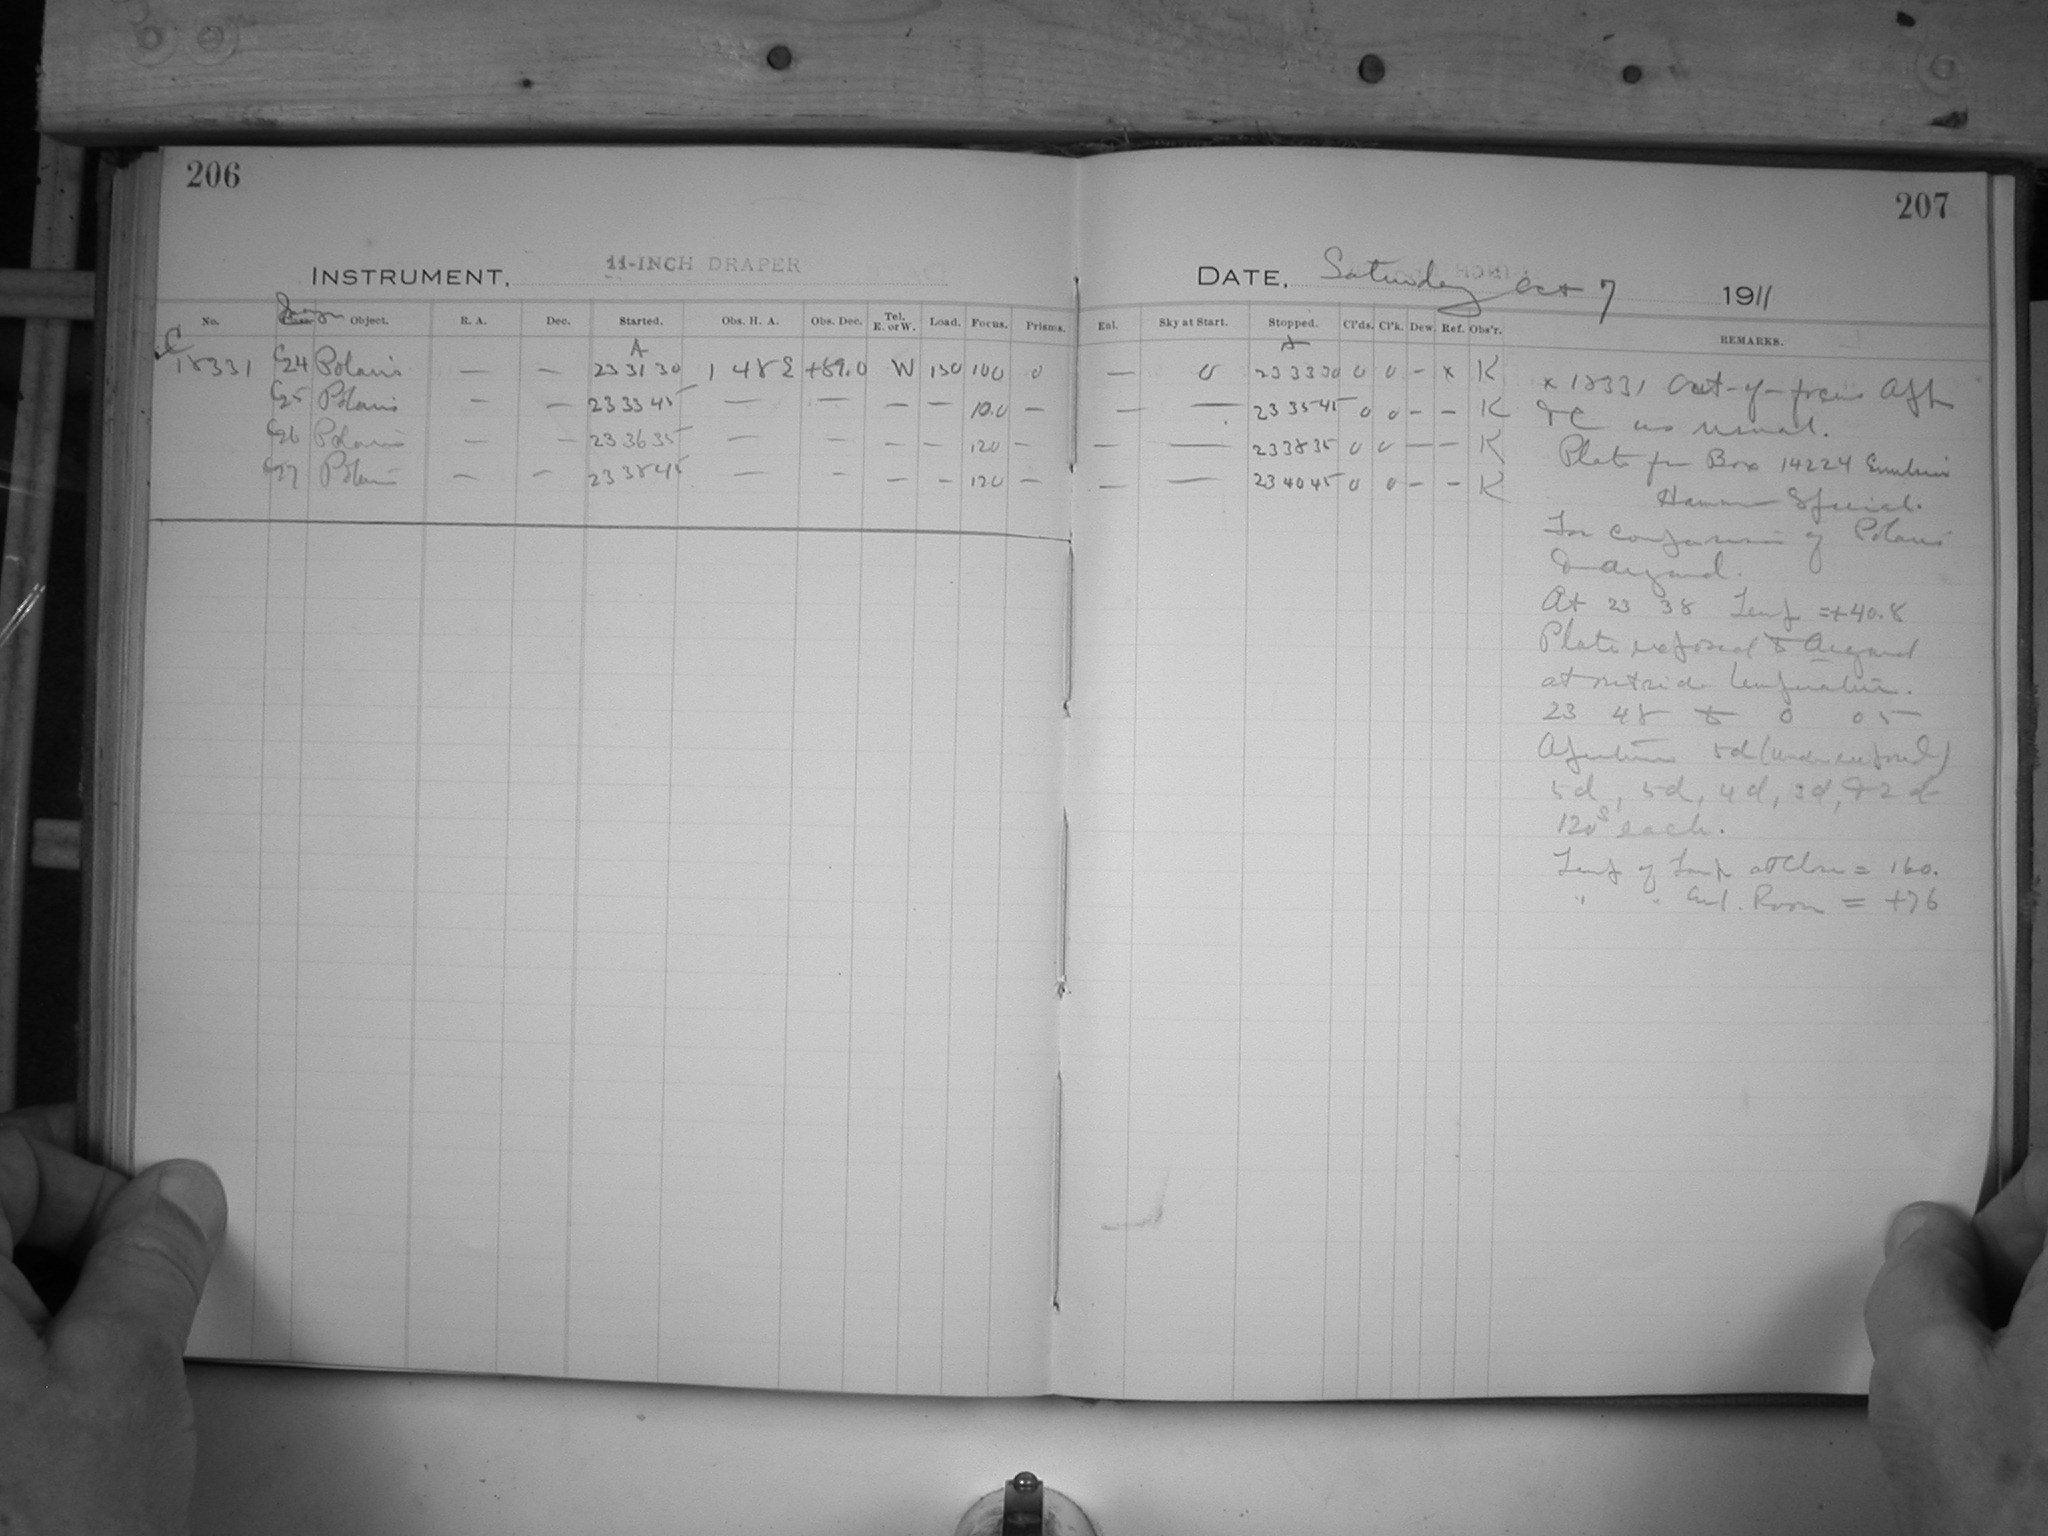 206
207
INSTRUMENT, 11-INCH DRAPER
DATE, Saturday Oct 7 1911
No. Object. R. A. Dec. Started. Obs. H. A. Obs. Dec. Tel. E. or W. Load. Focus. Prisms. Enl. Sky at Start. Stopped. Cl'ds. Cl'k. Dew. Ref. Obs'r. REMARKS.
A A
C 18331 C24 Polaris — — 23 31 30 1 48 E +89.0 W 130 100 0 — 0 23 33 30 0 0 – x K
C25 Polaris – — 23 33 45 — — — – 10.0 – — — 23 35 45 0 0 – – K
C26 Polaris – — 23 36 35 — – – – 120 – — — 23 38 35 0 0 — – K
C27 Polaris – – 23 38 45 — – – – 120 – — — 23 40 45 0 0 – – K
x 18331 Out-of-focus Aft
& C as usual.
Plate fr Box 14224 Emulsion
Hammer Special.
For comparison of Polaris
& Argand.
At 23 38 Temp = +40.8
Plate exposed to Argand
at outside temperature.
23 48 to 0 05
Apertures 5d (underexposed)
5d, 5d, 4d, 3d, & 2d
120s each.
Temp of Lamp at Close = 160.
" " Enl. Room = +76